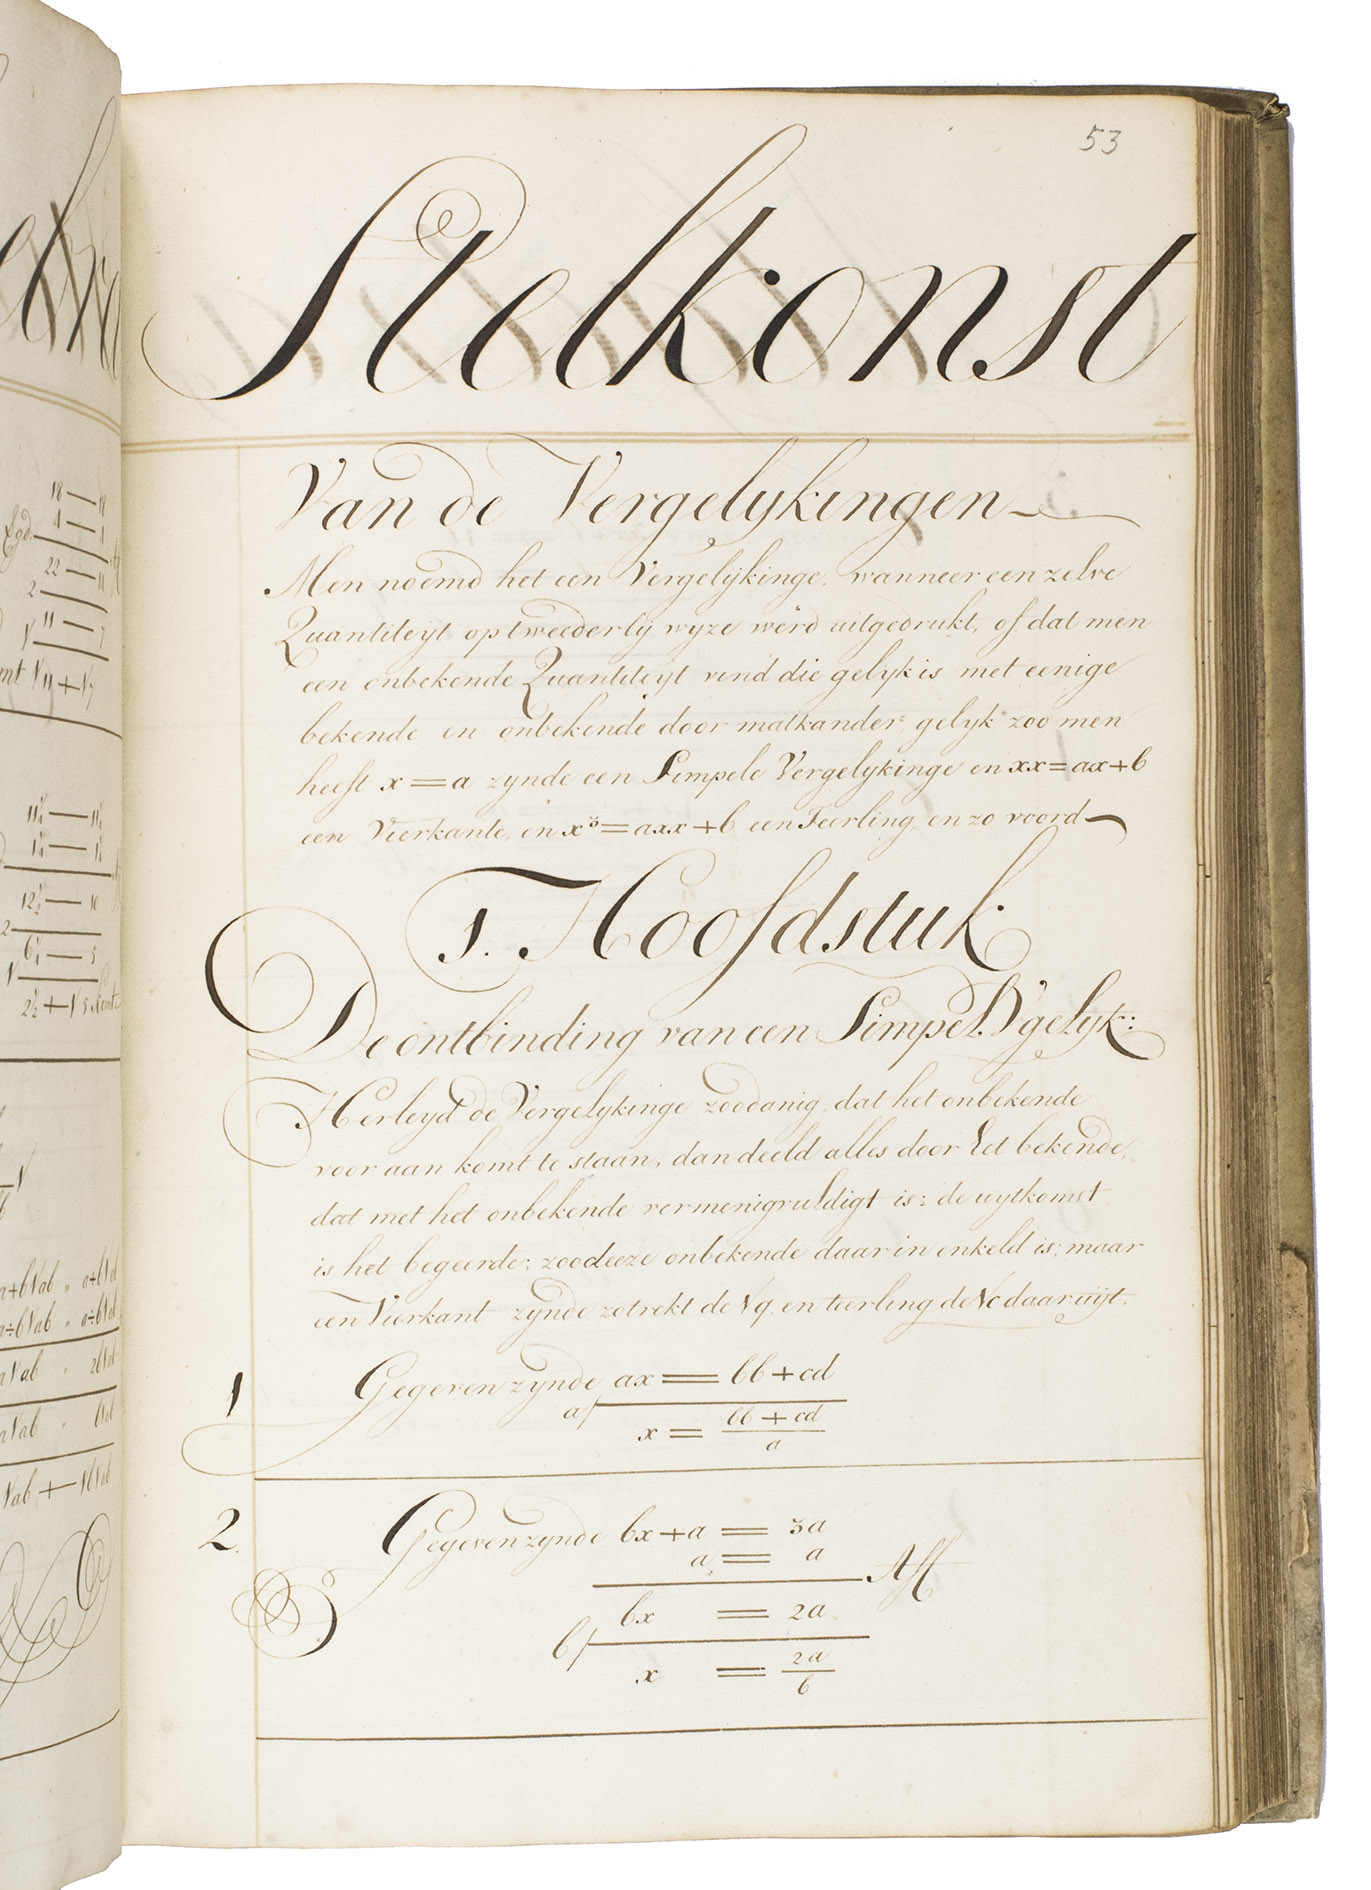 53
Stelkonst
Van de Vergelykingen
Men noemd het een Vergelijkinge, wanneer een zelve
Quantiteijt op tweederlij wyze werd uitgedrukt, of dat men
een onbekende Quantiteijt vind die gelyk is met eenige
bekende en onbekende door malkander, gelyk zoo men
heeft x = a zynde een Simpele Vergelykinge en xx = ax + b
een Vierkante, en x³ = axx + b een Teerling, en zo voord
1. Hoofdstuk
De ontbinding van een Simpel. V'gelyk:
Herleyd de Vergelykinge zoodanig, dat het onbekende
voor aan komt te staan, dan deeld alles door het bekende,
dat met het onbekende vermenigvuldigt is: de uytkomst
is het begeerde; zoo deeze onbekende daar in enkeld is; maar
een Vierkant zynde zo trekt de √q, en teerling de √c daar uijt.
1 Gegeven zynde ax = bb + cd
a/
x = bb + cd / a
2 Gegeven zynde bx + a = 3a
a = a Aft
bx = 2a
b/
x = 2a / b
18 — 18
4 — 1
22 — 11
2
11 — 7
√11 + √7
11¼ — 11¼
1¼ — 1¼
12½ — 10
2
6¼ — 5
√
2½ + √5